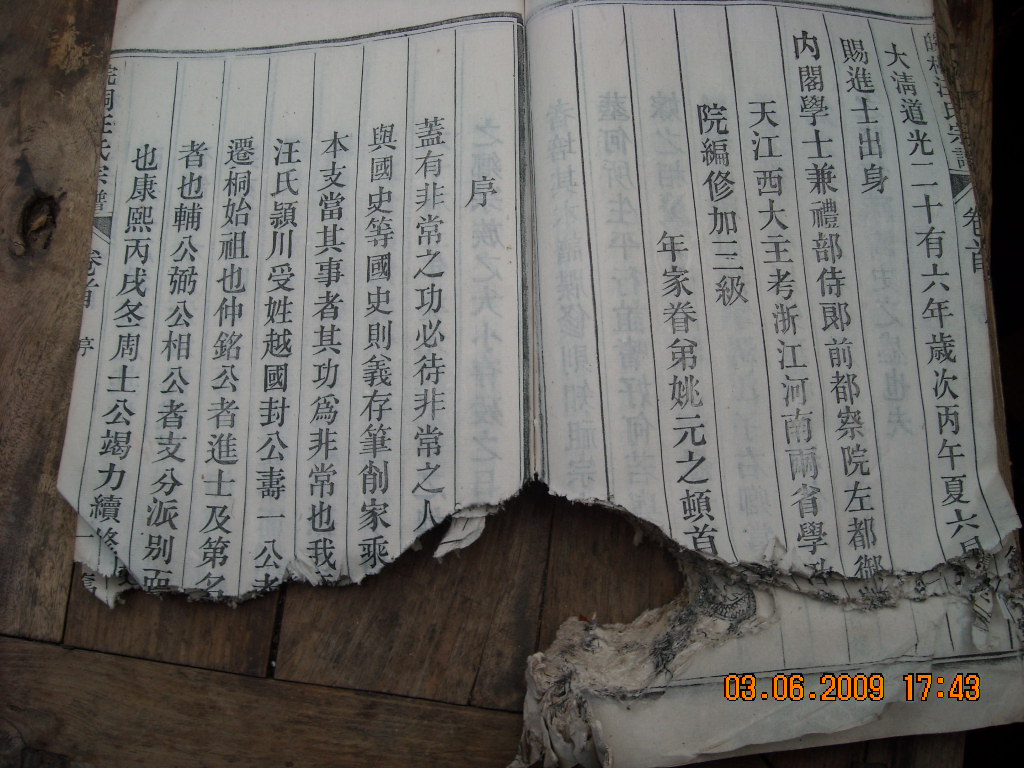 大清道光二十有六年歲次丙午夏六月
賜進士出身
內閣學士兼禮部侍郎前都察院左都御
天江西大王考浙江河南兩省學政
院編修加三級
年家眷弟姚元之頓首
序
蓋有非常之功必待非常之人
與國史等國史則義存筆削家乘
本支當其事者其功為非常也我
汪氏頴川受姓越國封公壽一公者
遷桐始祖也仲銘公者進士及第名
者也輔公弼公相公者支分派別而
也康熙丙戌冬周士公竭力續修
氏宗譜 卷首 序
03.06.2009 17:43